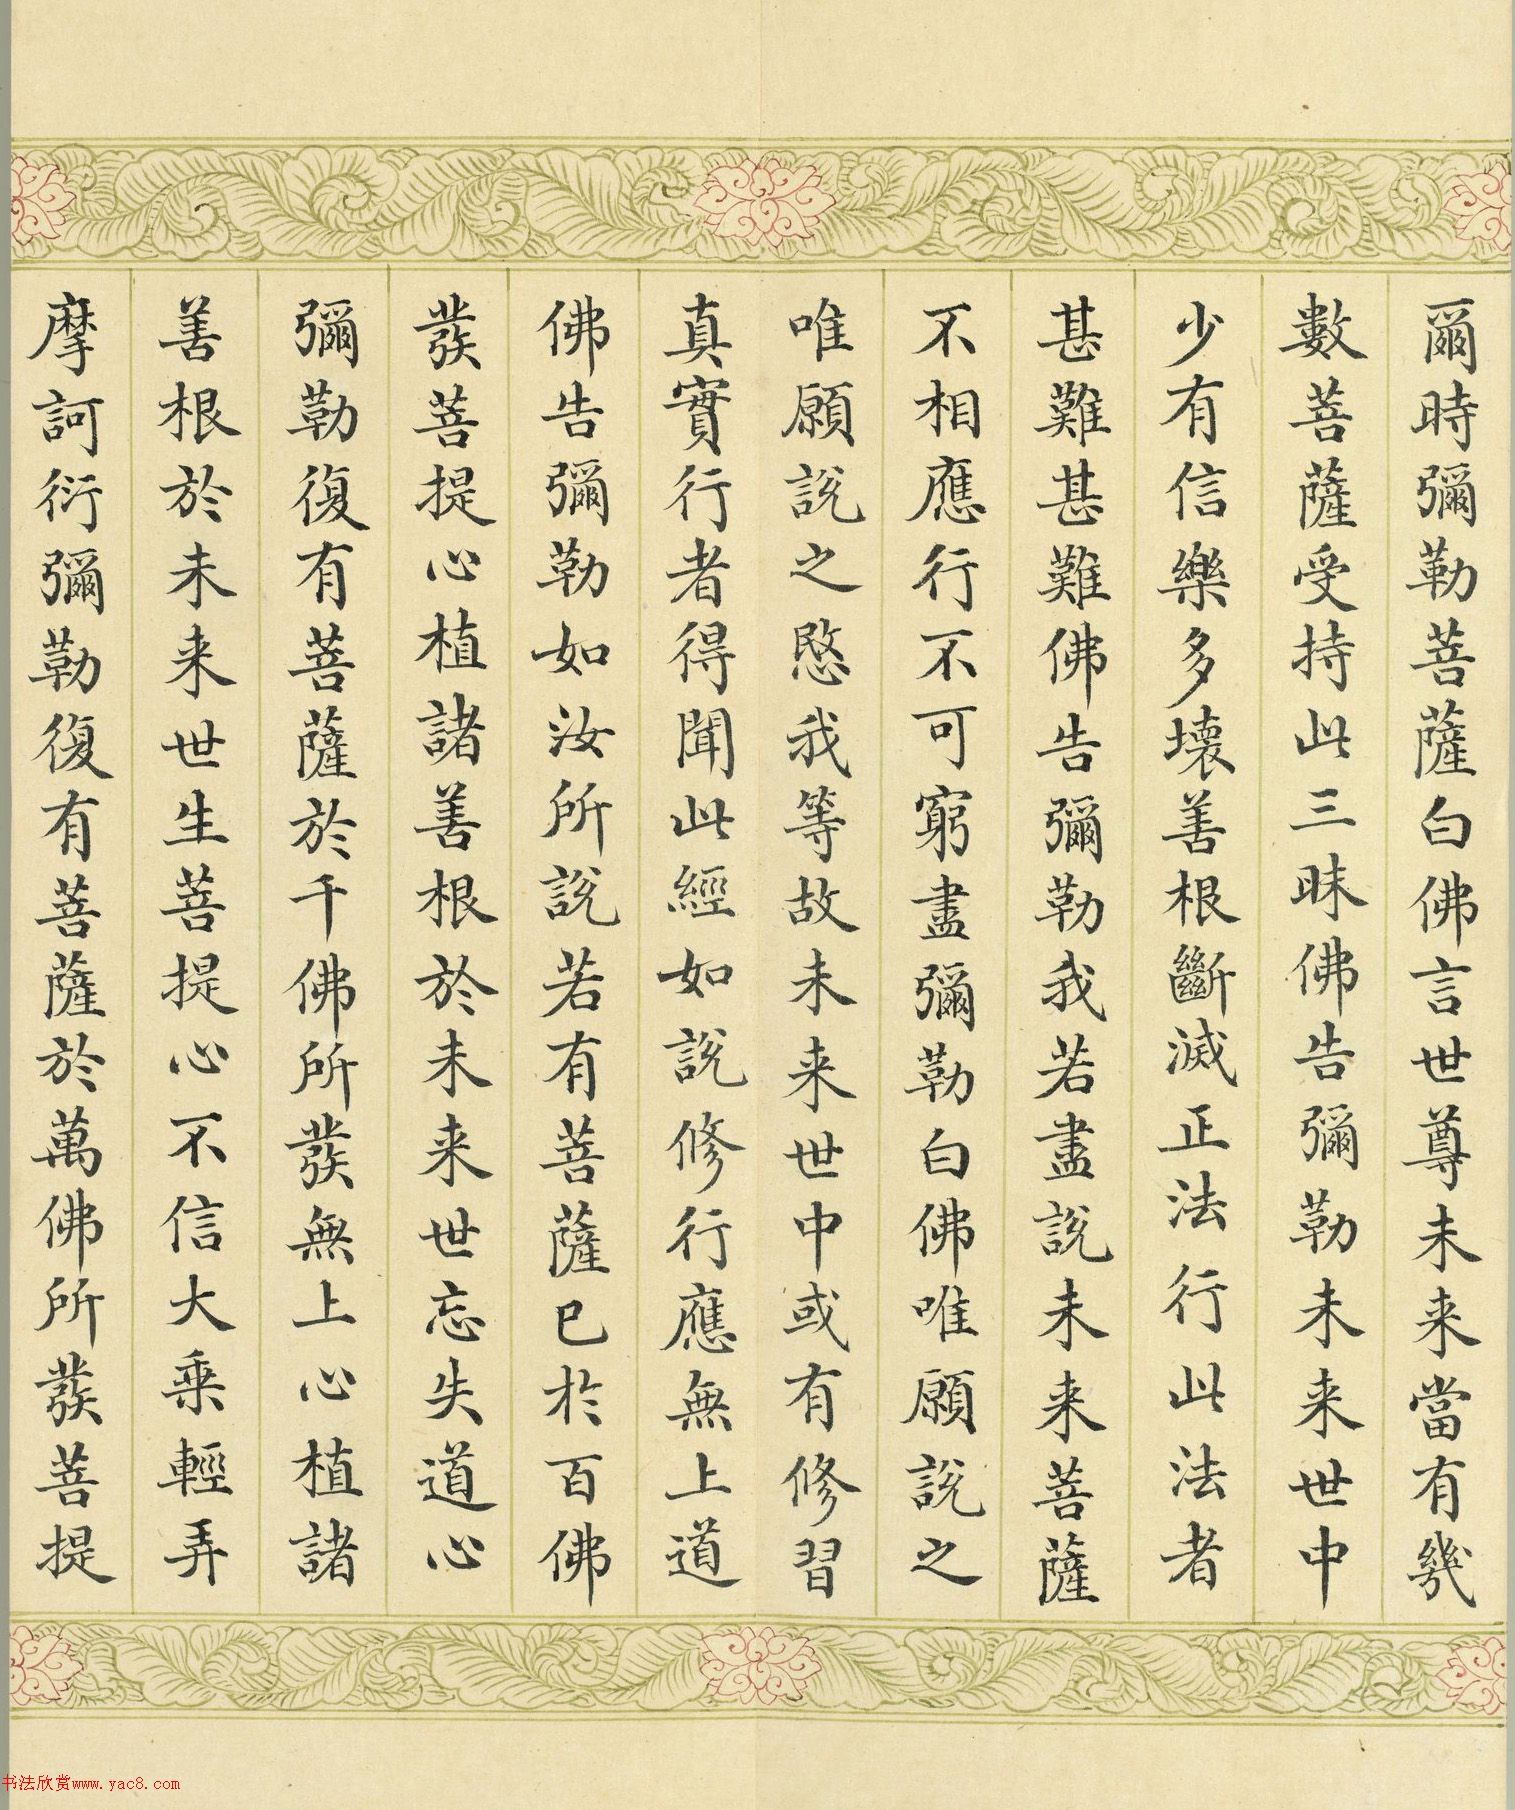 爾時彌勒菩薩白佛言世尊未来當有幾
數菩薩受持此三昧佛告彌勒未来世中
少有信樂多壞善根斷滅正法行此法者
甚難甚難佛告彌勒我若盡說未来菩薩
不相應行不可窮盡彌勒白佛唯願說之
唯願說之愍我等故未来世中或有修習
真實行者得聞此經如說修行應無上道
佛告彌勒如汝所說若有菩薩已於百佛
發菩提心植諸善根於未来世忘失道心
彌勒復有菩薩於千佛所發無上心植諸
善根於未来世生菩提心不信大乘輕弄
摩訶衍彌勒復有菩薩於萬佛所發菩提
书法欣赏www.yac8.com